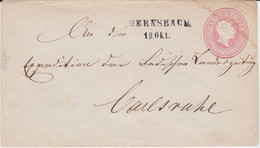 GERNSBACH
19. Okt.
An die
Expedition der Badischen Landeszeitung
Carlsruhe